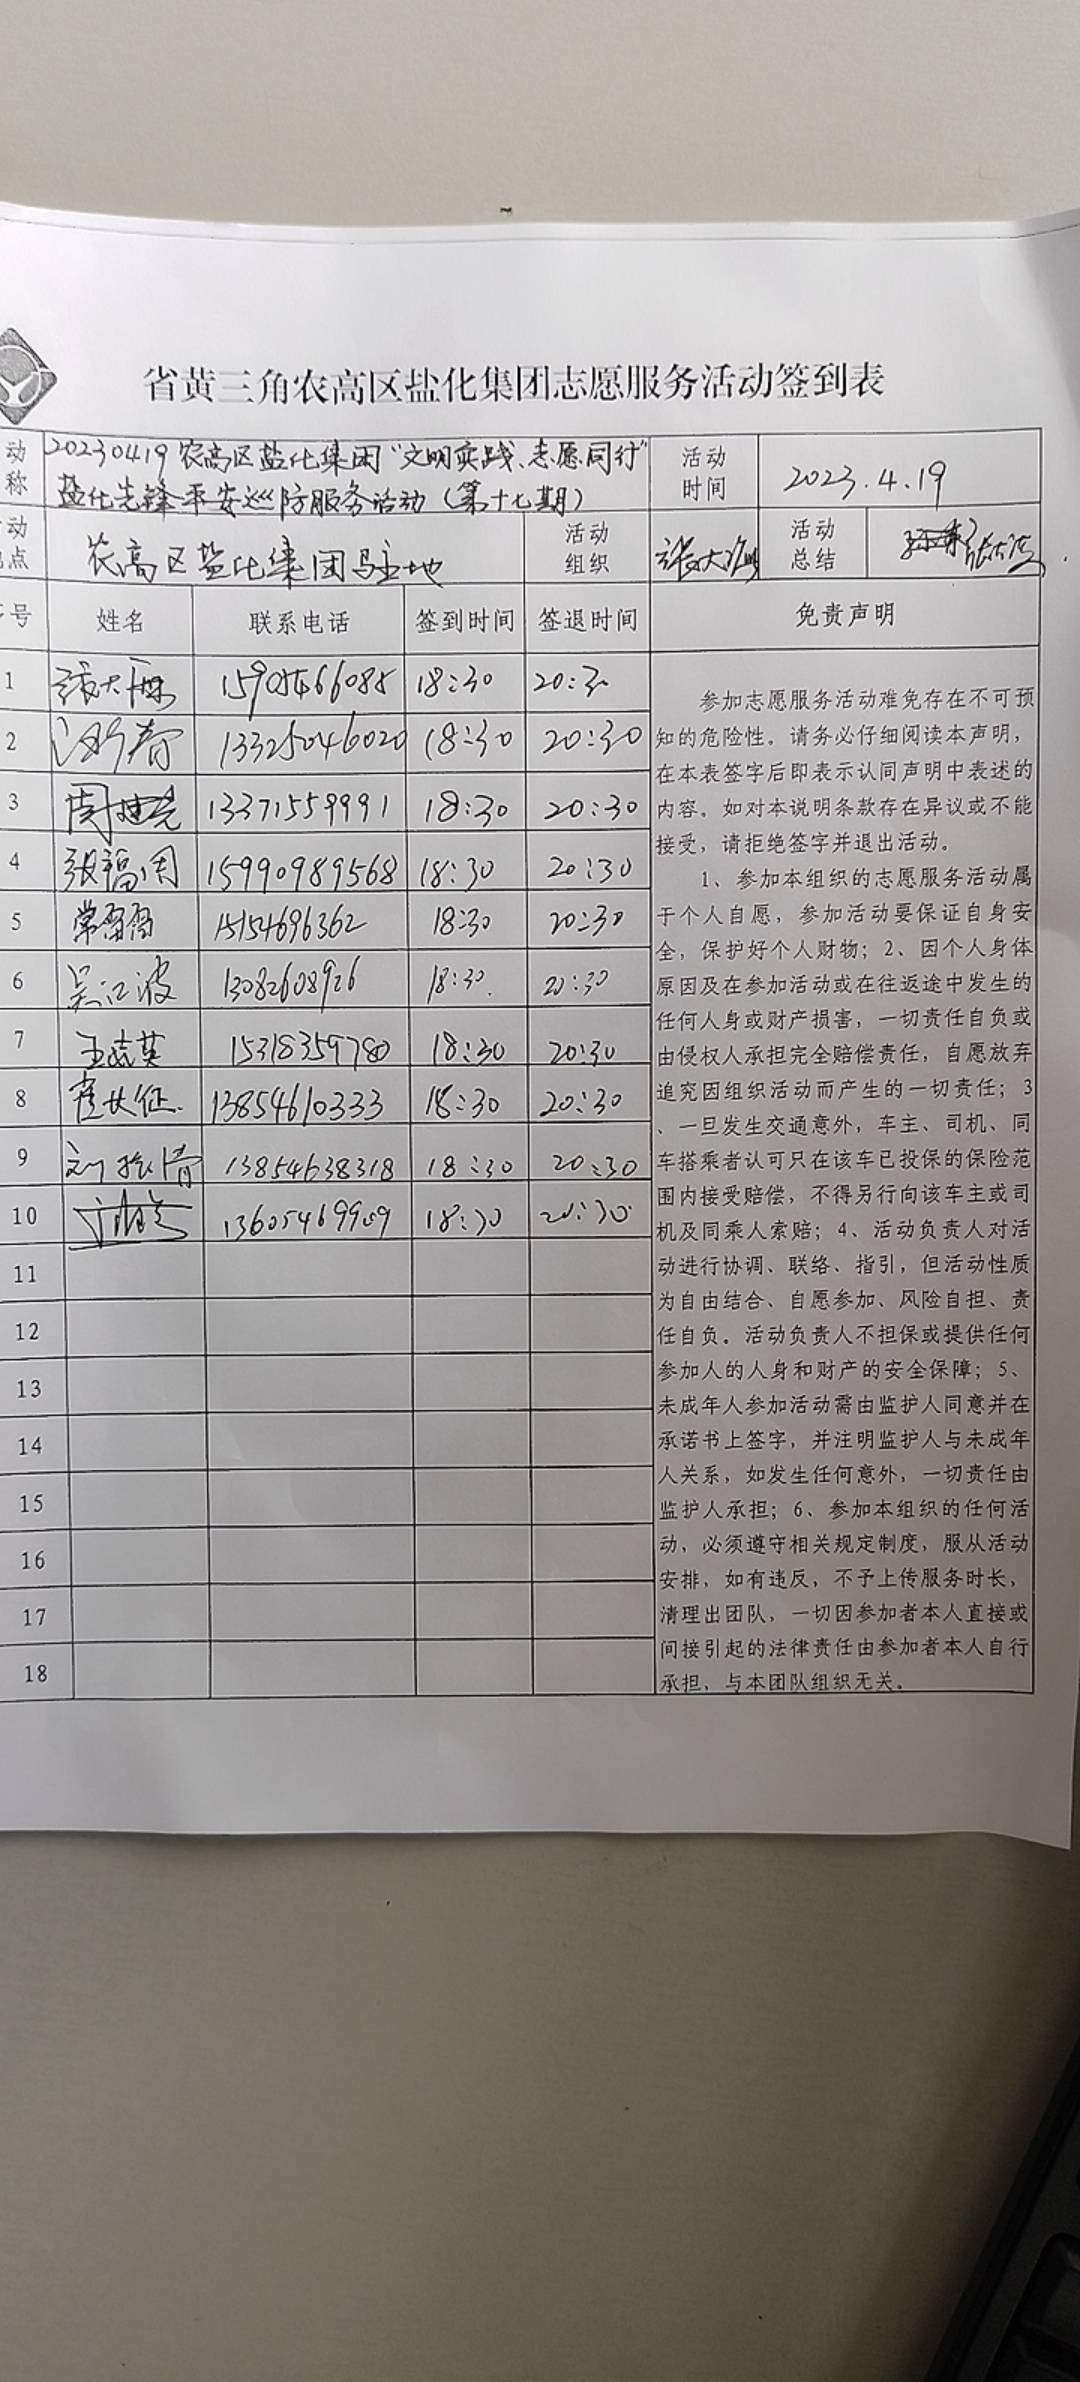 省黄三角农高区盐化集团志愿服务活动签到表
动 称 20230419农高区盐化集团“文明实践、志愿同行” 盐化先锋平安巡防服务活动(第十七期) 活动时间 2023.4.19
动 点 农高区盐化集团驻地 活动组织 张大 活动总结
号 姓名 联系电话 签到时间 签退时间 免责声明
1 张大 15905466085 18:30 20:30
2 13325046020 18:30 20:30
3 周 13371559991 18:30 20:30
4 张福 15990989568 18:30 20:30
5 常 15154696362 18:30 20:30
6 吴江波 13082608926 18:30 20:30
7 王 英 15318359780 18:30 20:30
8 13854610333 18:30 20:30
9 刘 13854638318 18:30 20:30
10 13605469909 18:30 20:30
11
12
13
14
15
16
17
18
参加志愿服务活动难免存在不可预
知的危险性。请务必仔细阅读本声明,
在本表签字后即表示认同声明中表述的
内容。如对本说明条款存在异议或不能
接受,请拒绝签字并退出活动。
1、参加本组织的志愿服务活动属
于个人自愿,参加活动要保证自身安
全,保护好个人财物;2、因个人身体
原因及在参加活动或在往返途中发生的
任何人身或财产损害,一切责任自负或
由侵权人承担完全赔偿责任,自愿放弃
追究因组织活动而产生的一切责任;3
、一旦发生交通意外,车主、司机、同
车搭乘者认可只在该车已投保的保险范
围内接受赔偿,不得另行向该车主或司
机及同乘人索赔;4、活动负责人对活
动进行协调、联络、指引,但活动性质
为自由结合、自愿参加、风险自担、责
任自负。活动负责人不担保或提供任何
参加人的人身和财产的安全保障;5、
未成年人参加活动需由监护人同意并在
承诺书上签字,并注明监护人与未成年
人关系,如发生任何意外,一切责任由
监护人承担;6、参加本组织的任何活
动,必须遵守相关规定制度,服从活动
安排,如有违反,不予上传服务时长,
清理出团队,一切因参加者本人直接或
间接引起的法律责任由参加者本人自行
承担,与本团队组织无关。